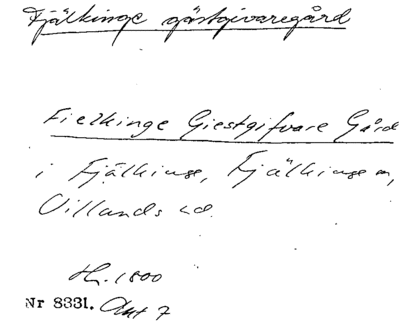 Fjälkinge gästgivaregård
Fielkinge Giestgifvare Gård
i Fjälkinge, Fjälkinge sn,
Villands hd.
Hr. 1800
Nr 8331. Akt 7